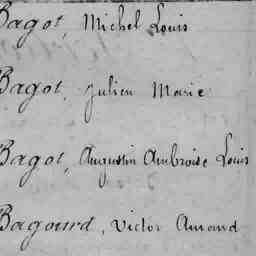 Bagot, Michel Louis
Bagot, Julien Marie
Bagot, Augustin Ambroise Louis
Bagourd, Victor Amand